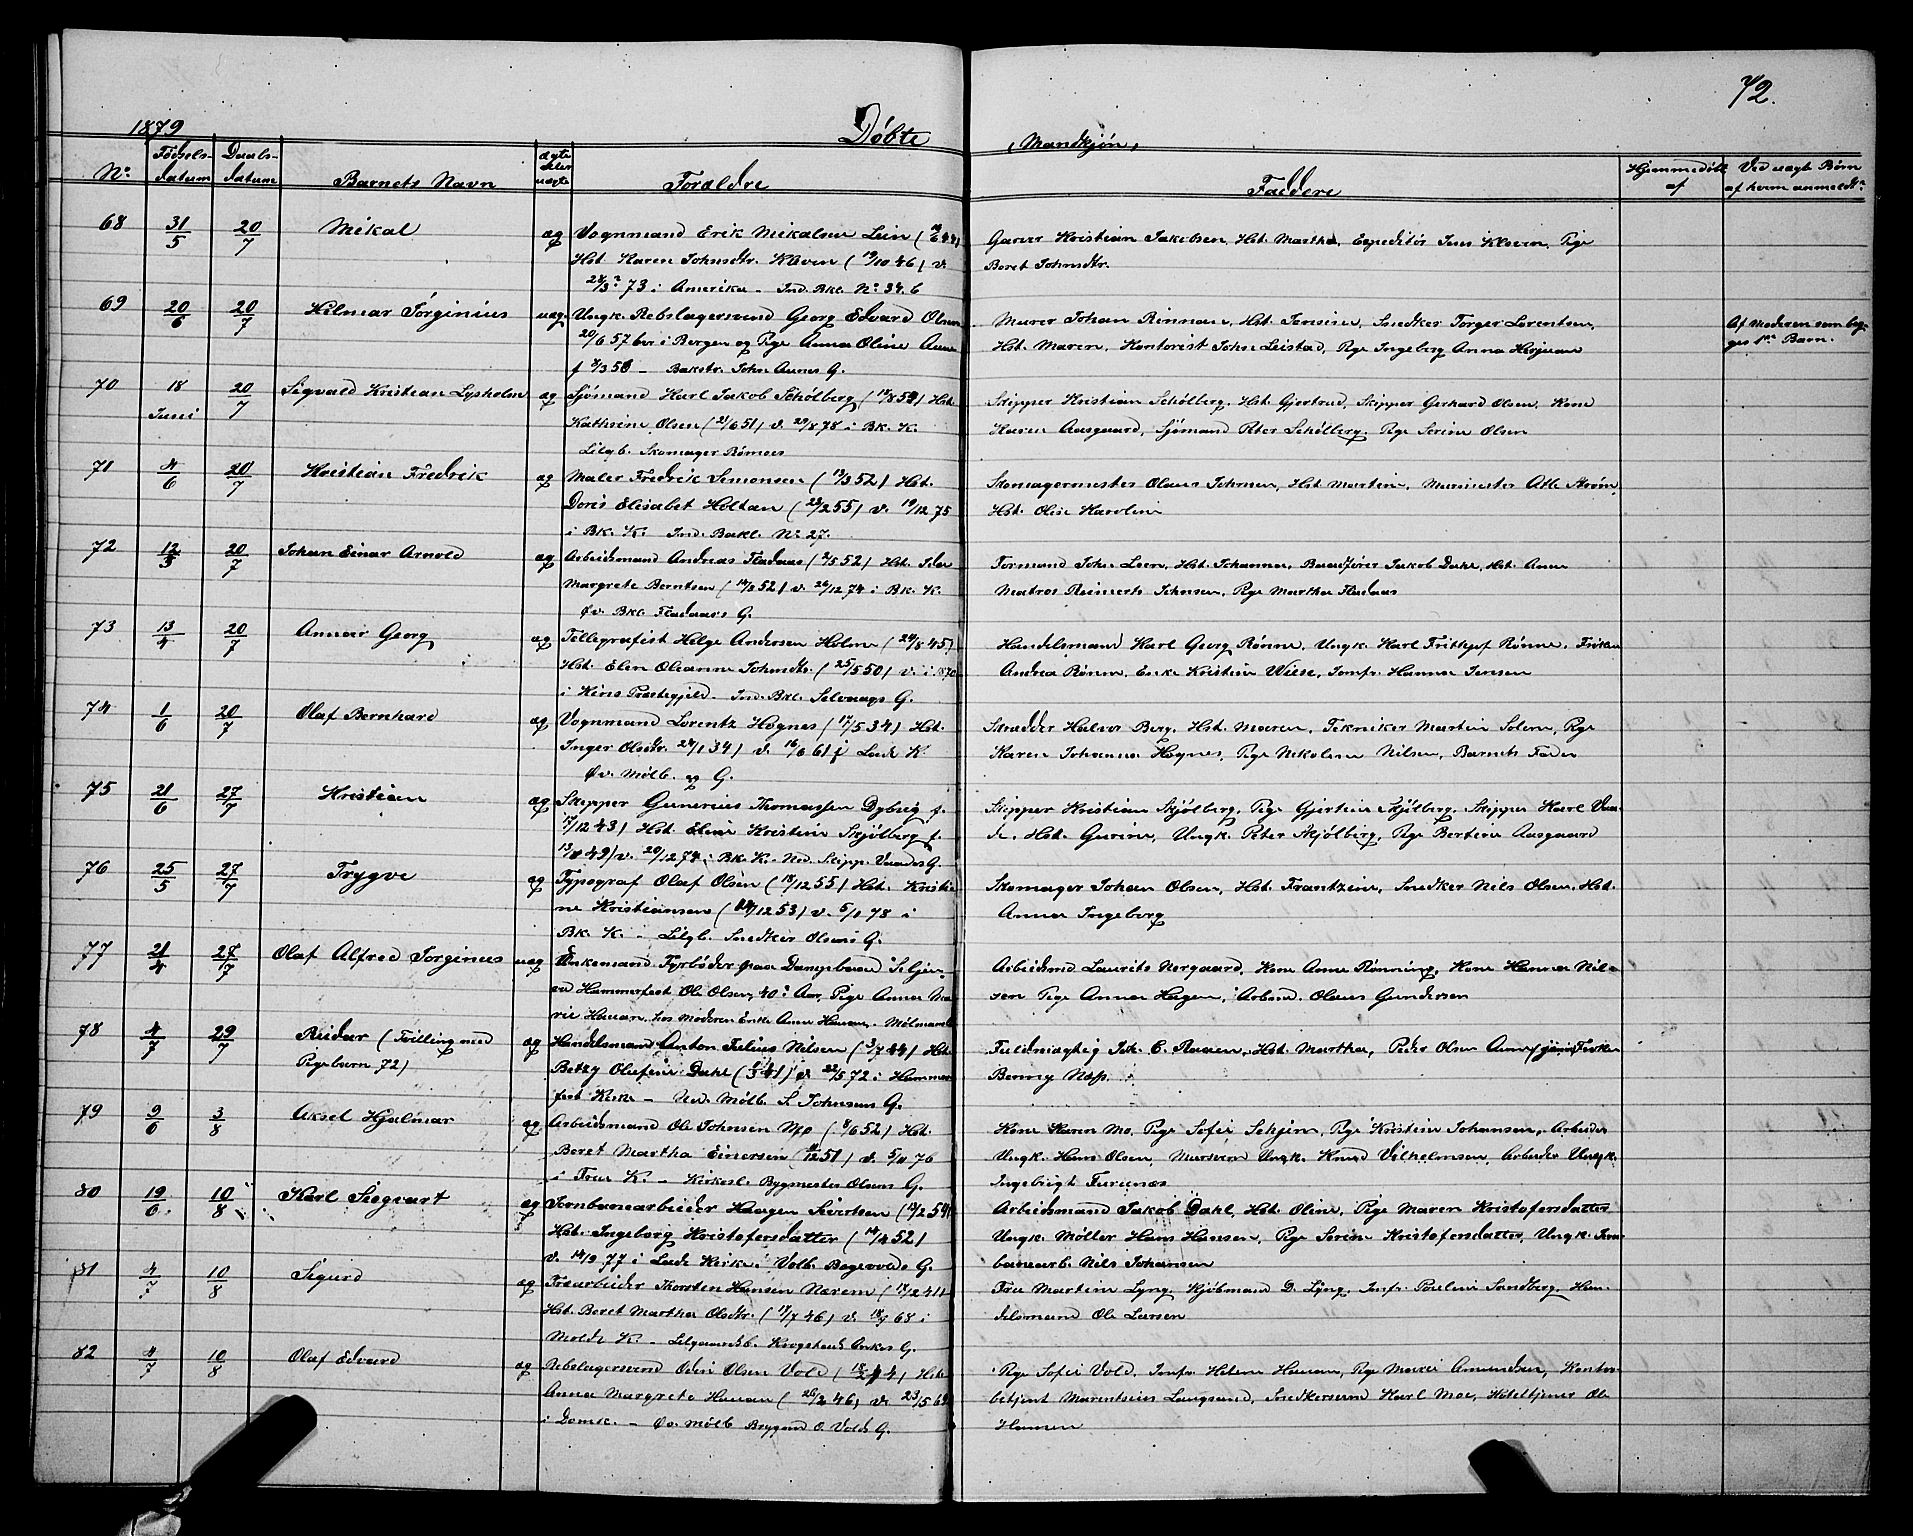 72.
1879 Døbte Mandkjøn,
No Fødsels- datum Daabs- datum Barnets Navn ægte eller uægte Forældre Faddere Hjemmedøbt af Ved uægt Børn af hvem anmeldt
68 31/5 20/7 Mikal æg Vognmand Erik Mikalsen Lein
Hst. Karen Johnsdtr. Kleven (19/10 46) v.
73 i Amerika – Ind. Bkl. No 34. b
Garver Kristian Jakobsen, Hst. Martha, Expeditør Jens Kleven, Pige
Beret Johnsdtr.
69 20/6 20/7 Hilmar Jørginius uæg. Ungk. Rebslagersvend Georg Edvard Olsen
i Bergen og Pige Anna Oline Aune
f – Bakstr. John Aunes G.
Murer Johan Rinnan, Hst. Jensine, Snedker Torger Lorentsen,
Hst. Maren, Kontorist John Leistad, Pige Ingeberg Anna
Af Moderen som beg-
ges 1ste Barn.
70 18 Juni 20/7 Sigvald Kristian Lysholm æg Sjømand Karl Jakob Schölberg Hst
Kathrine Olsen (21/6 51) v. 29/8 78 i Bk. K.
Lilgb. Skomager
Skipper Kristian Schölberg, Hst. Gjertrud, Skipper Gerhard Olsen, Kone
Karen Aasgaard, Sjømand Peter Schölberg, Pige Serine Olsen
71 4/6 20/7 Kristian Fredrik æg Maler Fredrik Simonsen (13/3 52) Hst.
Doris Elisabet Holtan (23/2 55) v. 19/12 75
i Bk. K. Ind. Bakl. No 27.
Skomagermester Olaus Johnsen, Hst. Martine, Murmester Atle Strøm,
Hst. Olise Karoline
72 12/3 20/7 Johan Einar Arnold æg Arbeidsmand Andreas Fladaas (2/5 52) Hst. Ida
Margrete Berntsen v. 26/12 74 i Bk. K.
Øv. Bkl. Fladaas G.
Formand John Leen, Hst. Johanna, Baadfører Jakob Dahl, Hst. Anne
Matros Reinert Johnsen, Pige Martha Fladaas
73 13/4 20/7 Annar Georg æg Tellegrafist Helge Andersen Holm (24/8 45)
Hst. Elen Oleanne Johnsdtr. (25/5 50) v. i 1870
i Kins Præstegjeld – Ind. Bkl. Selvaags G.
Handelsmand Karl Georg Rønne, Ungk. Karl Frithjof Rønne, Frøken
Andrea Rønne, Enke Kristine Wiese, Jomfr. Hanna Jensen
74 1/6 20/7 Olaf Bernhard æg Vognmand Lorentz Hognes (17/5 34) Hst.
Inger Olsdtr. 34) v. 61 i Lade K.
Øv. Mølb. G.
Skrædder Halvor Berg, Hst. Maren, Tekniker Martin Solem, Pige
Karen Johanna Hognes, Pige Nikoline Nilsen, Barnets Fader
75 21/6 27/7 Kristian æg Skipper Gunerius Thomassen Dybvig f.
17/12 43) Hst. Eline Kristine Skjølberg f.
49) v. 20/12 74 i Bk. K. Ned. Skipp. Vaades G.
Skipper Kristian Skjølberg, Pige Gjertine Skjølberg, Skipper Karl Vaa-
de, Hst. Gurine, Ungk. Peter Skjølberg, Pige Bertine Aasgaard
76 25/5 27/7 Trygve æg Typograf Olaf Olsen (18/12 55) Hst. Kristi-
ne Kristiansen v. 5/1 78 i
Bk. K. – Lilgb. Snedker Olsens G.
Skomager Johan Olsen, Hst. Frantzine, Snedker Nils Olsen, Hst.
Anna Ingeborg
77 21/4 27/7 Olaf Alfred Jørginus uæg Enkemand Fyrbøder paa Dampbaad
Hammerfest Ole Olsen, 40 Aar, Pige Anna Ma-
rie Hauan, hos Moderen Enke Anne Hauan,
Arbeidsmd Laurits Nergaard, Kone Anne Rønning, Kone Hanna Nil-
sen Pige Anna Hagen, Arbmd. Olaus Gundersen
78 4/7 29/7 Reidar (Tvilling med
Pigebarn 72)
æg Handelsmand Anton Julius Nilsen (3/7 44) Hst
Betzy Olefine Dahl v 22/5 72 i Hammer-
fest Kirke – Ned. Mølb. S. Johnsens G.
Fuldmægtig Joh. C. Raaen, Hst. Martha, Peder Olsen Frøken
Benny Næss.
79 9/6 3/8 Aksel Hjalmar æg Arbeidsmand Ole Johnsen Mo (8/6 52) Hst.
Beret Martha Einersen v. 5/11 76
i Frue K. – Kirkesl. Bygmester Olsens G.
Kone Karen Mo, Pige Sofie Pige Kristine Johansen, Arbeider
Ungk. Hans Olsen, Ungk. Knud Vilhelmsen, Arbeider Ungk.
Ingebrigt Furunæs
80 19/6 10/8 Karl Sigvart æg Jernbanearbeider Haagen Sivertsen (12/2 54)
Hst. Ingeborg Kristofersdatter (14/4 52)
v. 14/9 77 i Lade Kirke i Volb. G.
Arbeidsmand Jakob Dahl, Hst. Oline, Pige Maren Kristofersdatter
Ungk. Møller Hans Hansen, Pige Serine Kristofersdatter, Ungk. Jern-
banearb. Nils Johansen
81 4/7 10/8 Sigurd æg Træarbeider Thorsten Hansen Nerem (17/2 41)
Hst. Beret Martha Olsdtr. (17/7 46) v. 68 i
Molde K. – Lilgaardsb. Krogstads Enkes G.
Fru Martine Lyng, Kjøbmand D. Lyng, Jomfr. Pauline Sandberg, Han-
delsmand Ole Larsen
82 4/7 10/8 Olaf Edvard æg Rebslagersvend Odin Olsen Vold Hst.
Anna Margrete Hauan (26/2 46) v. 23/5 69
i Domk. – Øv. Mølb Brygmd O. Volds G.
Pige Sofie Vold, Jomfr. Helene Hauan, Pige Marie Amundsen, Kontor-
betjent Marentsius Langsand, Snedkersvend Karl Moe, Hoteltjener Ole
Hansen